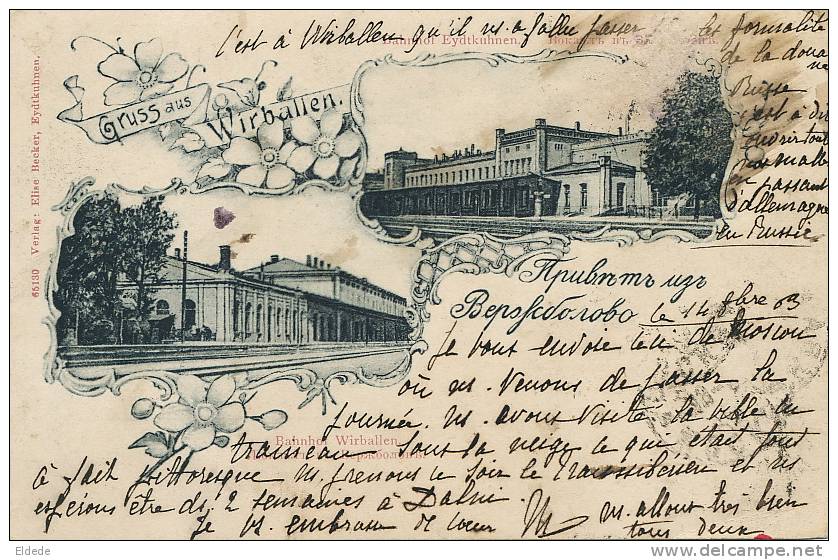 C'est à Wirballen qu'il ns. a fallu passer les formalités
de la douane
Russe
c'est à dire
ouvrir toutes
nos malles
à passant
d'allemagne
en Russie
Bahnhof Eydtkuhnen.
Gruss aus
Wirballen.
65130 Verlag: Elise Becker, Eydtkuhnen.
Привѣтъ изъ
Вержболово
le 14 03
Je vous envoie ceci de Moscou
où ns. venons de passer la
journée. Ns. avons visité la ville en
traineau sous la neige ce que était tout
Bahnhof Wirballen.
à fait pittoresque ns prenons ce soir le Transsibérien et ns
espérons être ds. 2 semaines à Dalni.
Je vs. embrasse de coeur
ns. allons très bien
tous deux
Eldede
www.delcampe.net